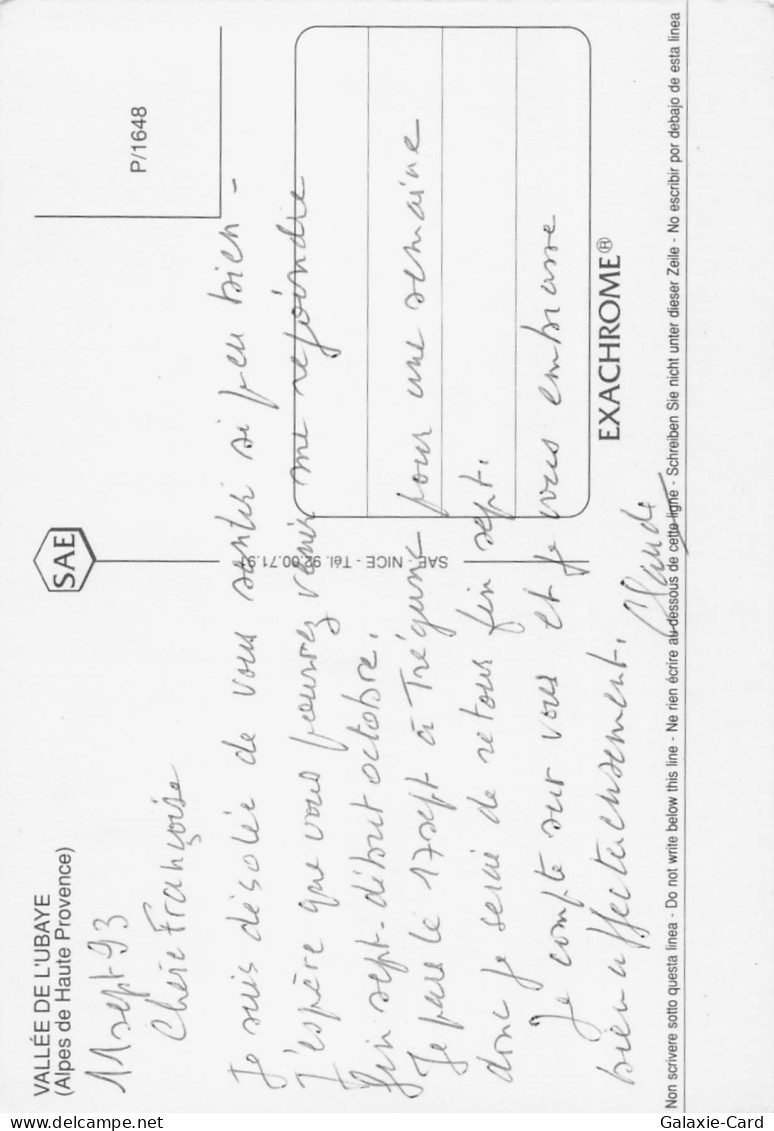 VALLÉE DE L'UBAYE
(Alpes de Haute Provence)
SAE
P/1648
11 sept 93
Chère Françoise
Je suis désolée de vous sentir si peu bien -
J'espère que vous pourrez venir me rejoindre
fin sept - début octobre.
Je pars le 17 sept à Trégunc pour une semaine
donc je serai de retour fin sept.
Je compte sur vous et je vous embrasse
bien affectueusement.
Claude
SAE - NICE - Tél. 92.00.71.9
EXACHROME®
Non scrivere sotto questa linea - Do not write below this line - Ne rien écrire au-dessous de cette ligne - Schreiben Sie nicht unter dieser Zeile - No escribir por debajo de esta linea
Galaxie-Card